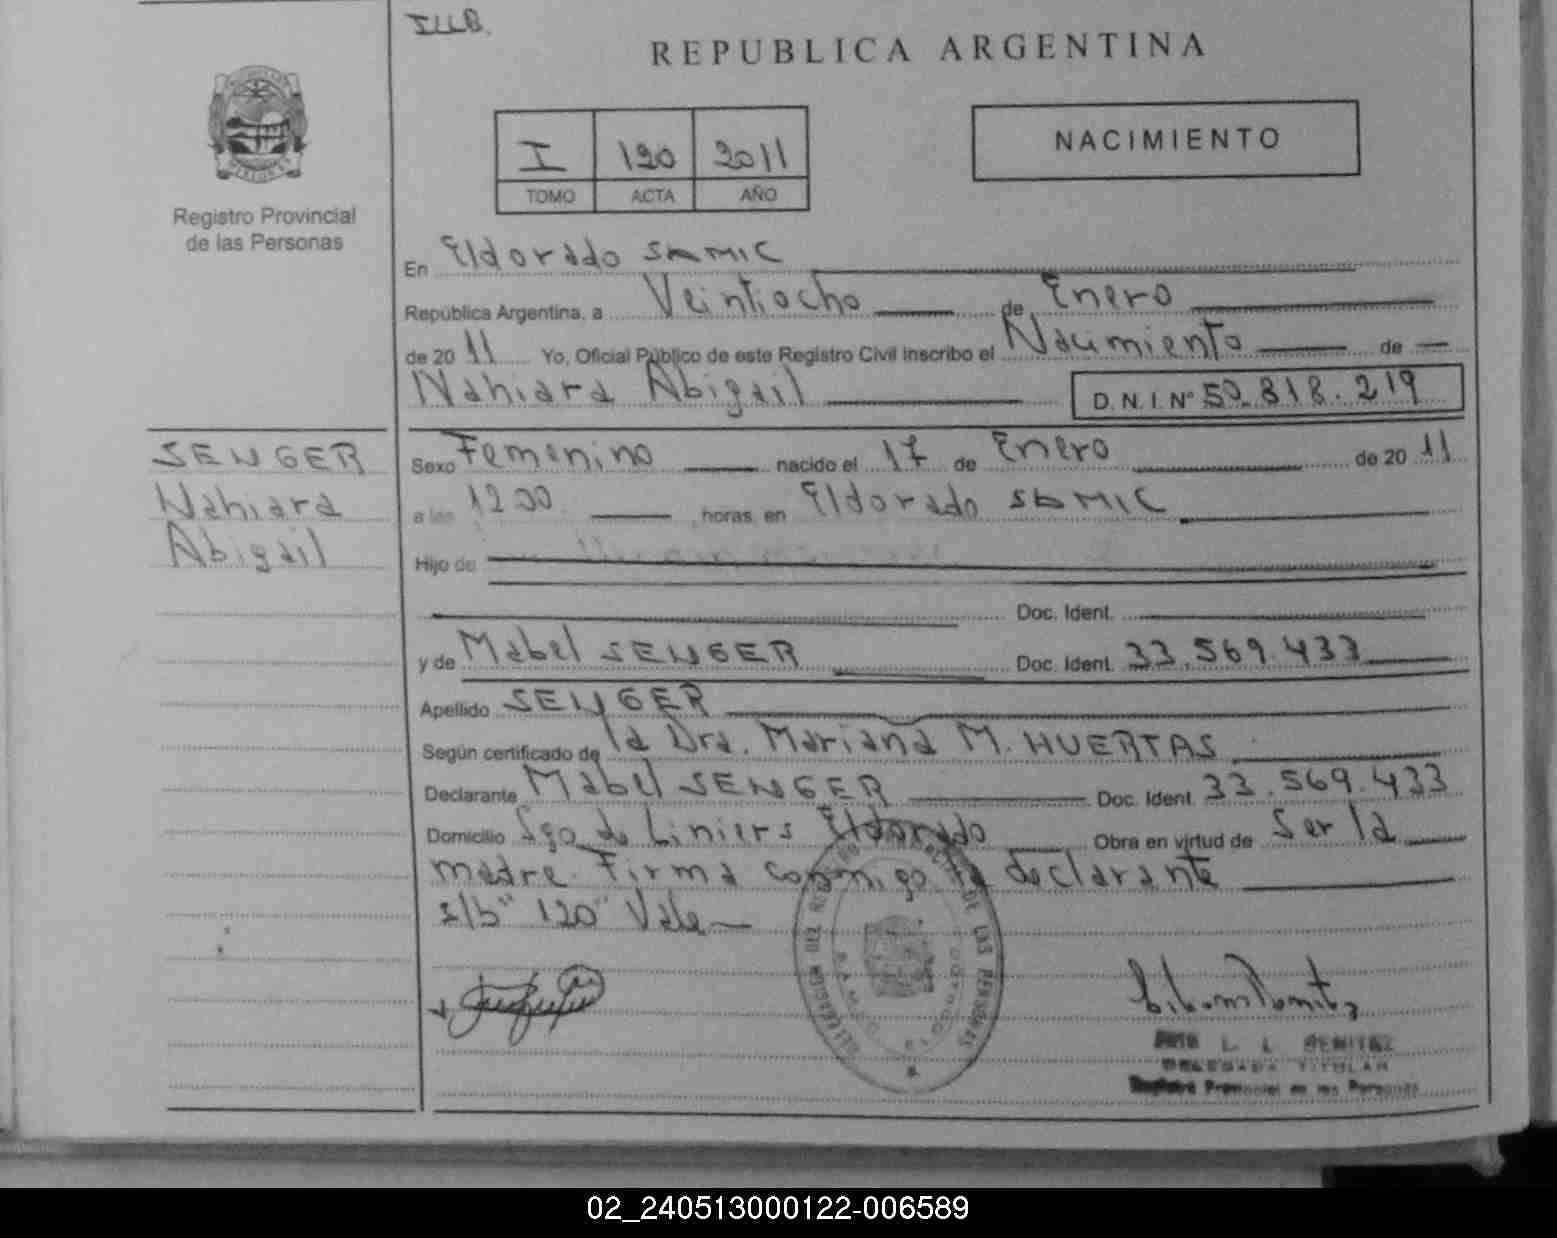 REPUBLICA ARGENTINA
I 120 2011
TOMO ACTA AÑO
NACIMIENTO
Registro Provincial
de las Personas
En Eldorado SAMIC
República Argentina, a Veintiocho de Enero
de 2011 Yo, Oficial Público de este Registro Civil inscribo el Nacimiento de
Nahiara Abigail D.N.I.Nº 50.818.219
SENGER
Nahiara
Abigail
Sexo Femenino nacido el 17 de Enero de 2011
a las 1200 horas, en Eldorado SAMIC
Hijo de
Doc. Ident.
y de Mabel SENGER Doc. Ident. 33.569.433
Apellido SENGER
Según certificado de la Dra. Mariana M. HUERTAS
Declarante Mabel SENGER Doc. Ident. 33.569.433
Domicilio Sgo. de Liniers Eldorado Obra en virtud de Ser la
madre. Firma conmigo la declarante
s/b "120" Vale
DELEGACION DEL REGISTRO DE LAS PERSONAS
BENITEZ
DELEGADA TITULAR
Registro Provincial de las Personas
02_240513000122-006589